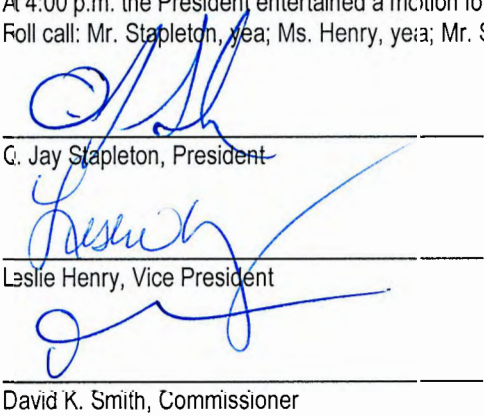 At 4:00 p.m. the President entertained a motion fo
Roll call: Mr. Stapleton, yea; Ms. Henry, yea; Mr. S
Q. Jay Stapleton, President
Leslie Henry, Vice President
David K. Smith, Commissioner